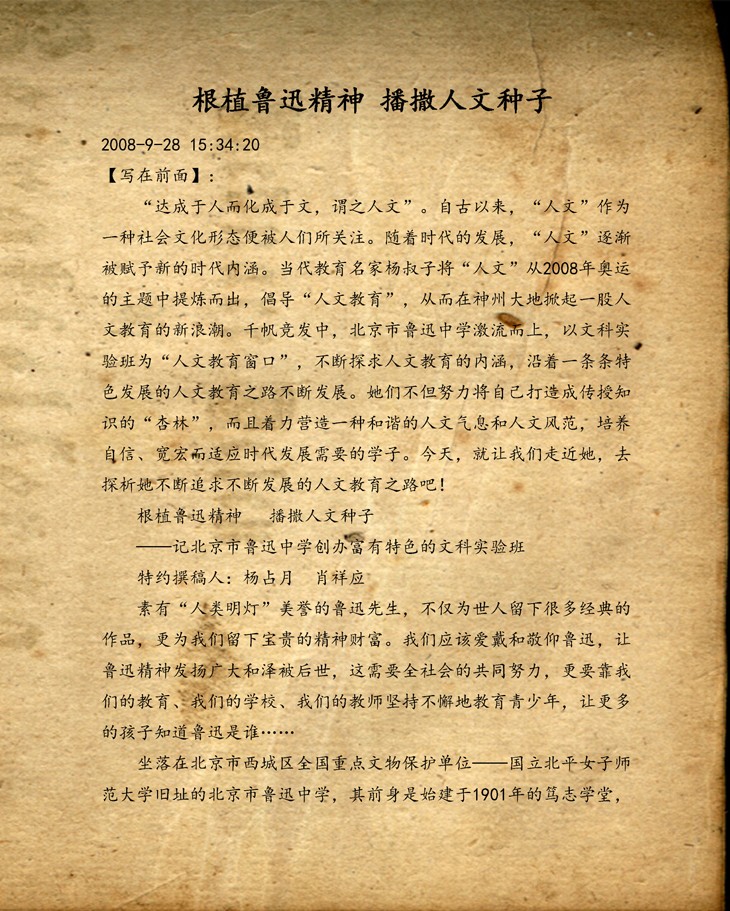 根植鲁迅精神 播撒人文种子
2008-9-28 15:34:20
【写在前面】：
“达成于人而化成于文，谓之人文”。自古以来，“人文”作为
一种社会文化形态便被人们所关注。随着时代的发展，“人文”逐渐
被赋予新的时代内涵。当代教育名家杨叔子将“人文”从2008年奥运
的主题中提炼而出，倡导“人文教育”，从而在神州大地掀起一股人
文教育的新浪潮。千帆竞发中，北京市鲁迅中学激流而上，以文科实
验班为“人文教育窗口”，不断探求人文教育的内涵，沿着一条条特
色发展的人文教育之路不断发展。她们不但努力将自己打造成传授知
识的“杏林”，而且着力营造一种和谐的人文气息和人文风范，培养
自信、宽宏而适应时代发展需要的学子。今天，就让我们走近她，去
探析她不断追求不断发展的人文教育之路吧！
根植鲁迅精神 播撒人文种子
——记北京市鲁迅中学创办富有特色的文科实验班
特约撰稿人：杨占月 肖祥应
素有“人类明灯”美誉的鲁迅先生，不仅为世人留下很多经典的
作品，更为我们留下宝贵的精神财富。我们应该爱戴和敬仰鲁迅，让
鲁迅精神发扬广大和泽被后世，这需要全社会的共同努力，更要靠我
们的教育、我们的学校、我们的教师坚持不懈地教育青少年，让更多
的孩子知道鲁迅是谁……
坐落在北京市西城区全国重点文物保护单位——国立北平女子师
范大学旧址的北京市鲁迅中学，其前身是始建于1901年的笃志学堂，